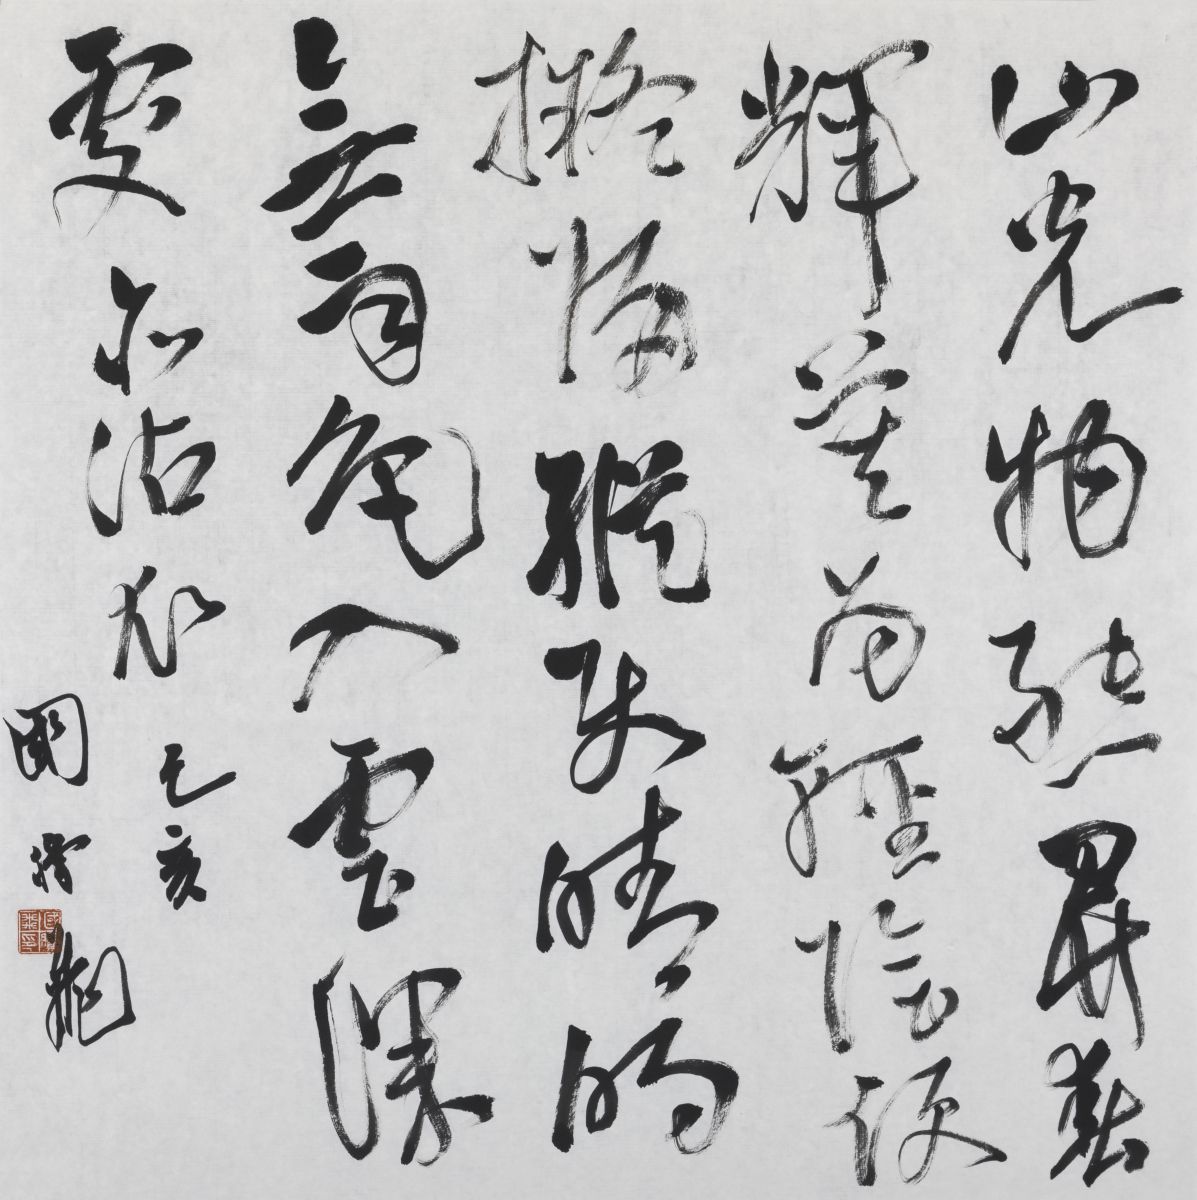 山光物態弄春
輝莫為輕陰便
擬歸縱使晴明
無雨色入雲深
處亦沾衣 己亥
國